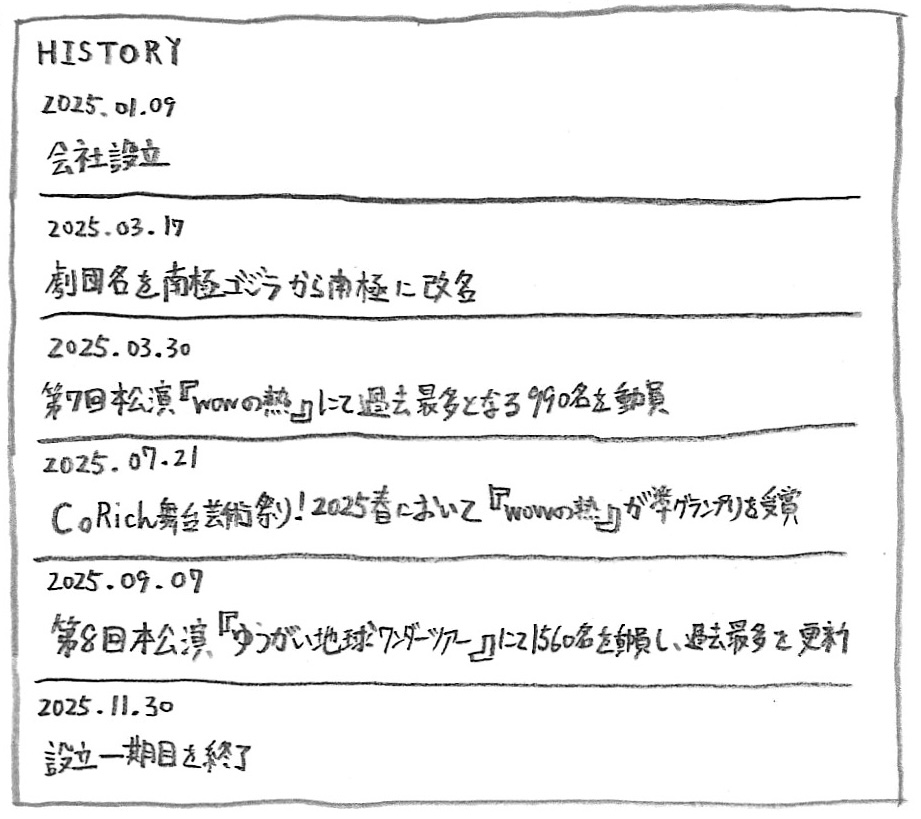 HISTORY
2025.01.09
会社設立
2025.03.17
劇団名を南極ゴジラから南極に改名
2025.03.30
第7回本公演『wowの熱』にて過去最多となる990名を動員
2025.07.21
CoRich舞台芸術祭り!2025春において『wowの熱』が準グランプリを受賞
2025.09.07
第8回本公演『ゆうがい地球ワンダーツアー』にて1560名を動員し、過去最多を更新
2025.11.30
設立一期目を終了